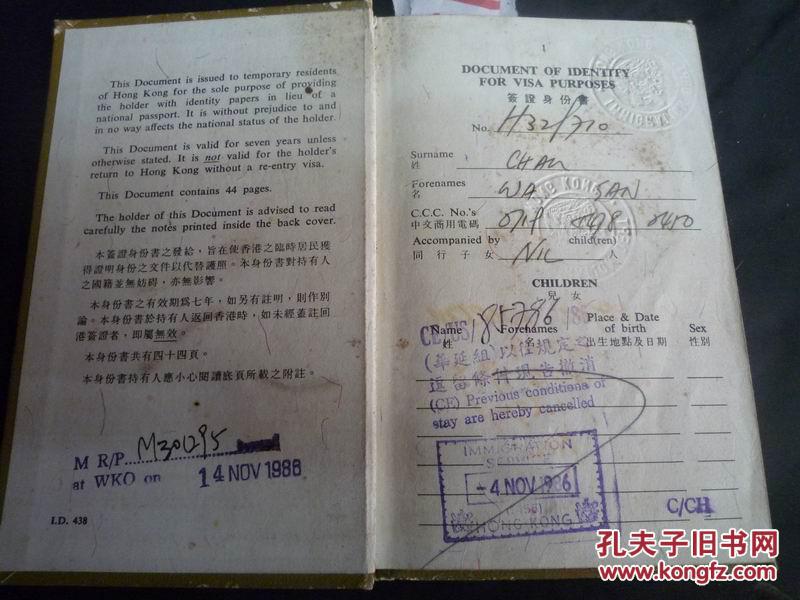 This Document is issued to temporary residents
of Hong Kong for the sole purpose of providing
the holder with identity papers in lieu of a
national passport. It is without prejudice to and
in no way affects the national status of the holder.
This Document is valid for seven years unless
otherwise stated. It is not valid for the holder's
return to Hong Kong without a re-entry visa.
This Document contains 44 pages.
The holder of this Document is advised to read
carefully the notes printed inside the back cover.
本簽證身份書之發給，旨在使香港之臨時居民獲
得證明身份之文件以代替護照。本身份書對持有人
之國籍並無妨碍，亦無影響。
本身份書之有效期爲七年，如另有註明，則作別
論。本身份書於持有人返回香港時，如未經蓋註回
港簽證者，即屬無效。
本身份書共有四十四頁。
本身份書持有人應小心閱讀底頁所載之附註。
M R/P M301295
at WKO on 14 NOV 1986
I.D. 438
1
DOCUMENT OF IDENTITY
FOR VISA PURPOSES
簽證身份書
No. H321710
Surname CHAN
姓
Forenames WA SAN
名
C.C.C. No.'s
中文商用電碼
Accompanied by NIL child(ren)
同行子女 人
CHILDREN
兒女
Name Forenames Place & Date of birth Sex
姓 名 出生地點及日期 性別
(華延組)以往規定之
逗留條件現告撤消
(CE) Previous conditions of
stay are hereby cancelled
IMMIGRATION
SERVICE
-4 NOV 1986
HONG KONG
C/CH
孔夫子旧书网
www.kongfz.com